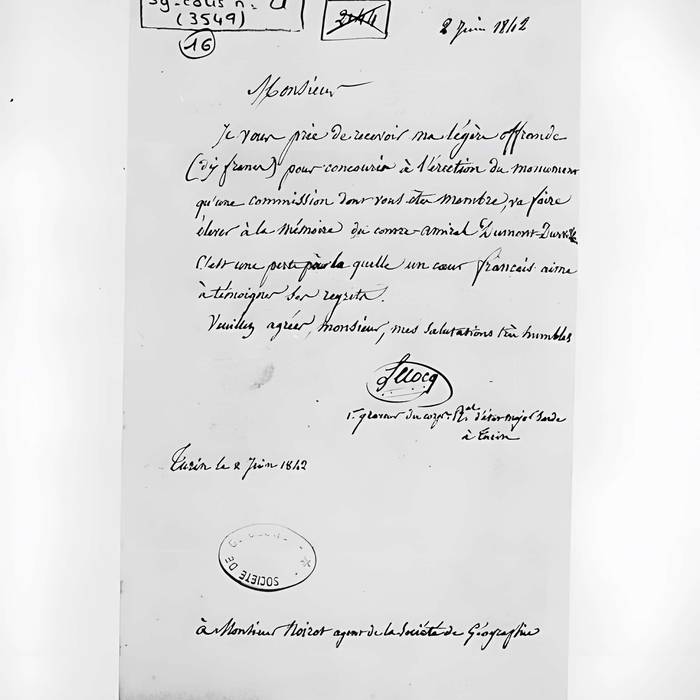 sg-colis n.
(3549)
2144
16
2 Juin 1842
Monsieur
Je vous prie de recevoir ma légère offrande
(dix francs) pour concourir à l'érection du monument
qu'une commission dont vous êtes membre, va faire
élever à la mémoire du contre-amiral Dumont-Durville
C'est une perte pour la quelle un cœur français aime
à témoigner ses regrets.
Veuillez agréer, monsieur, mes salutations très humbles
1er graveur du corps Ral d'état major Sarde
à Turin
Turin le 2 Juin 1842
SOCIETE DE
à Monsieur Noirot agent de la Société de Géographie